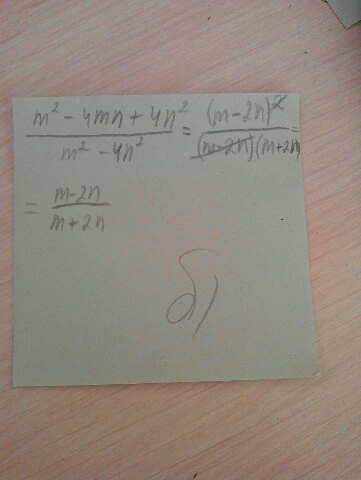 m² - 4mn + 4n² / m² - 4n² = (m - 2n)² / (m - 2n)(m + 2n) =
= m - 2n / m + 2n
б)